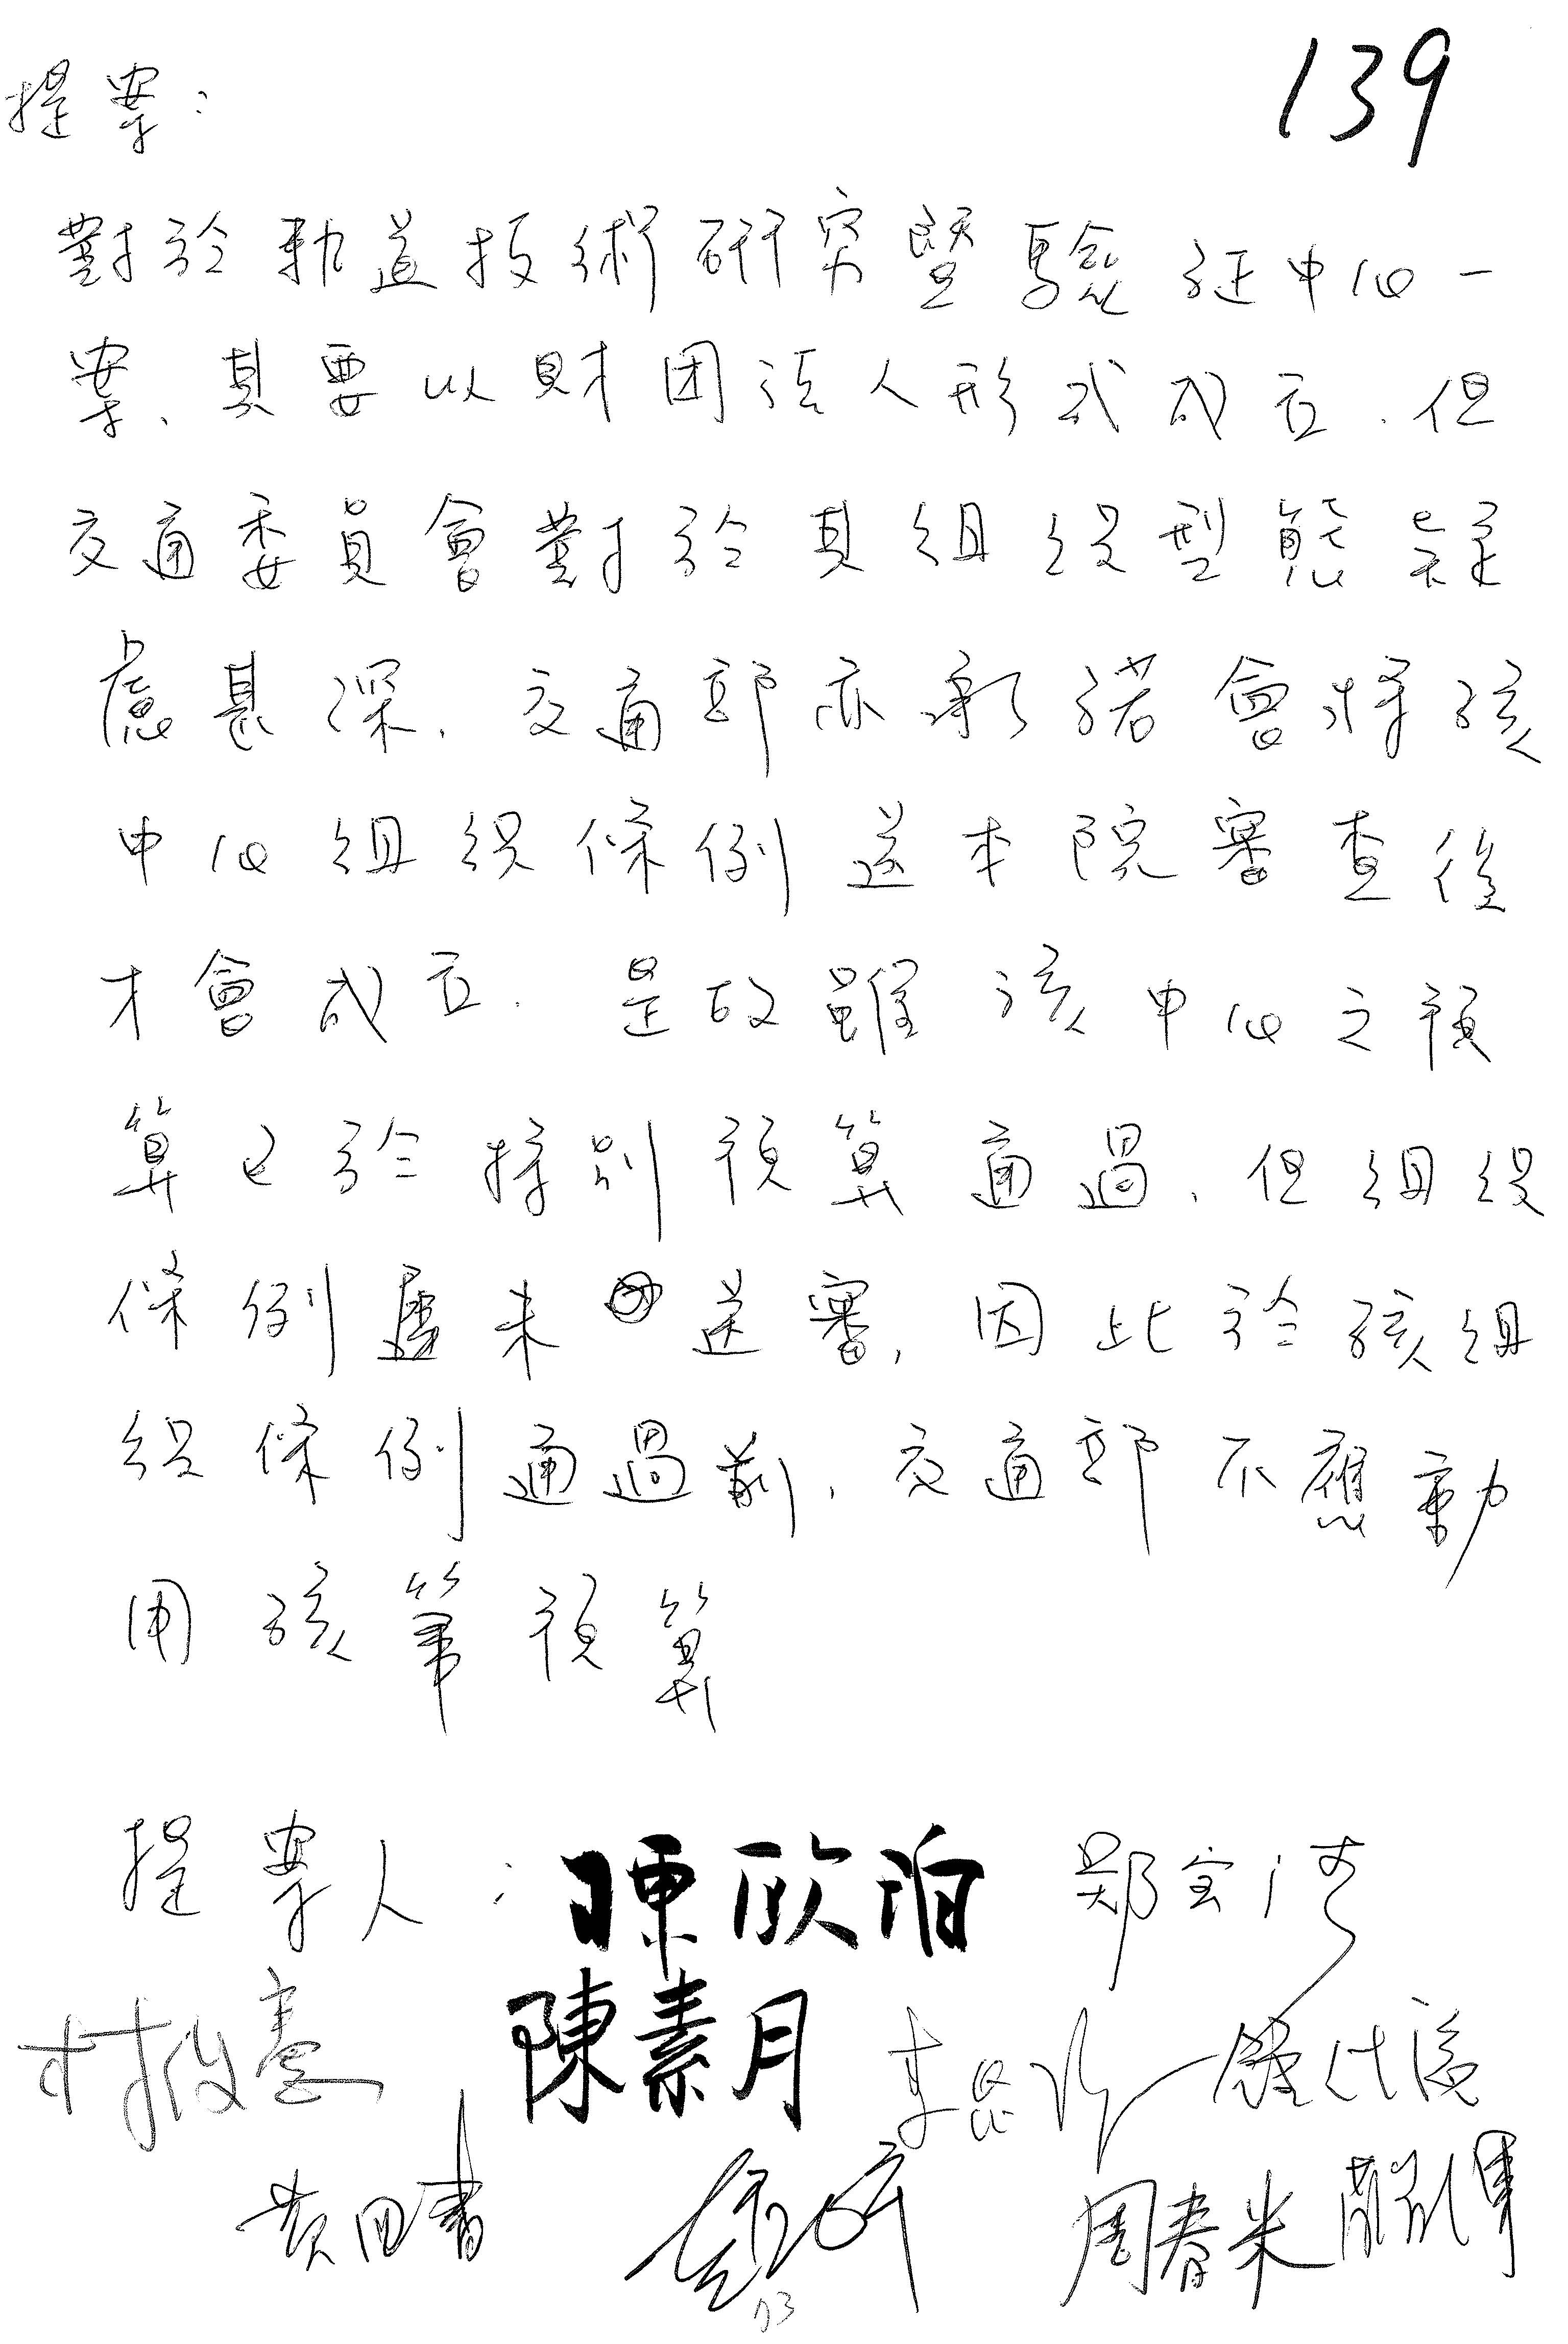 139
提案：
對於軌道技術研究暨驗証中心一
案、其要以財団法人形式成立．但
交通委員會對於其組織型態疑
慮甚深．交通部亦承諾會將該
中心組織條例送本院審查後
才會成立．是故雖該中心之預
算已於特別預算通過．但組織
條例屢未送審，因此於該組
織條例通過前．交通部不應動
用該筆預算
提案人：陳歐珀 鄭宝清
林俊憲 陳素月 李昆澤 鍾佳濱
黃国書 周春米